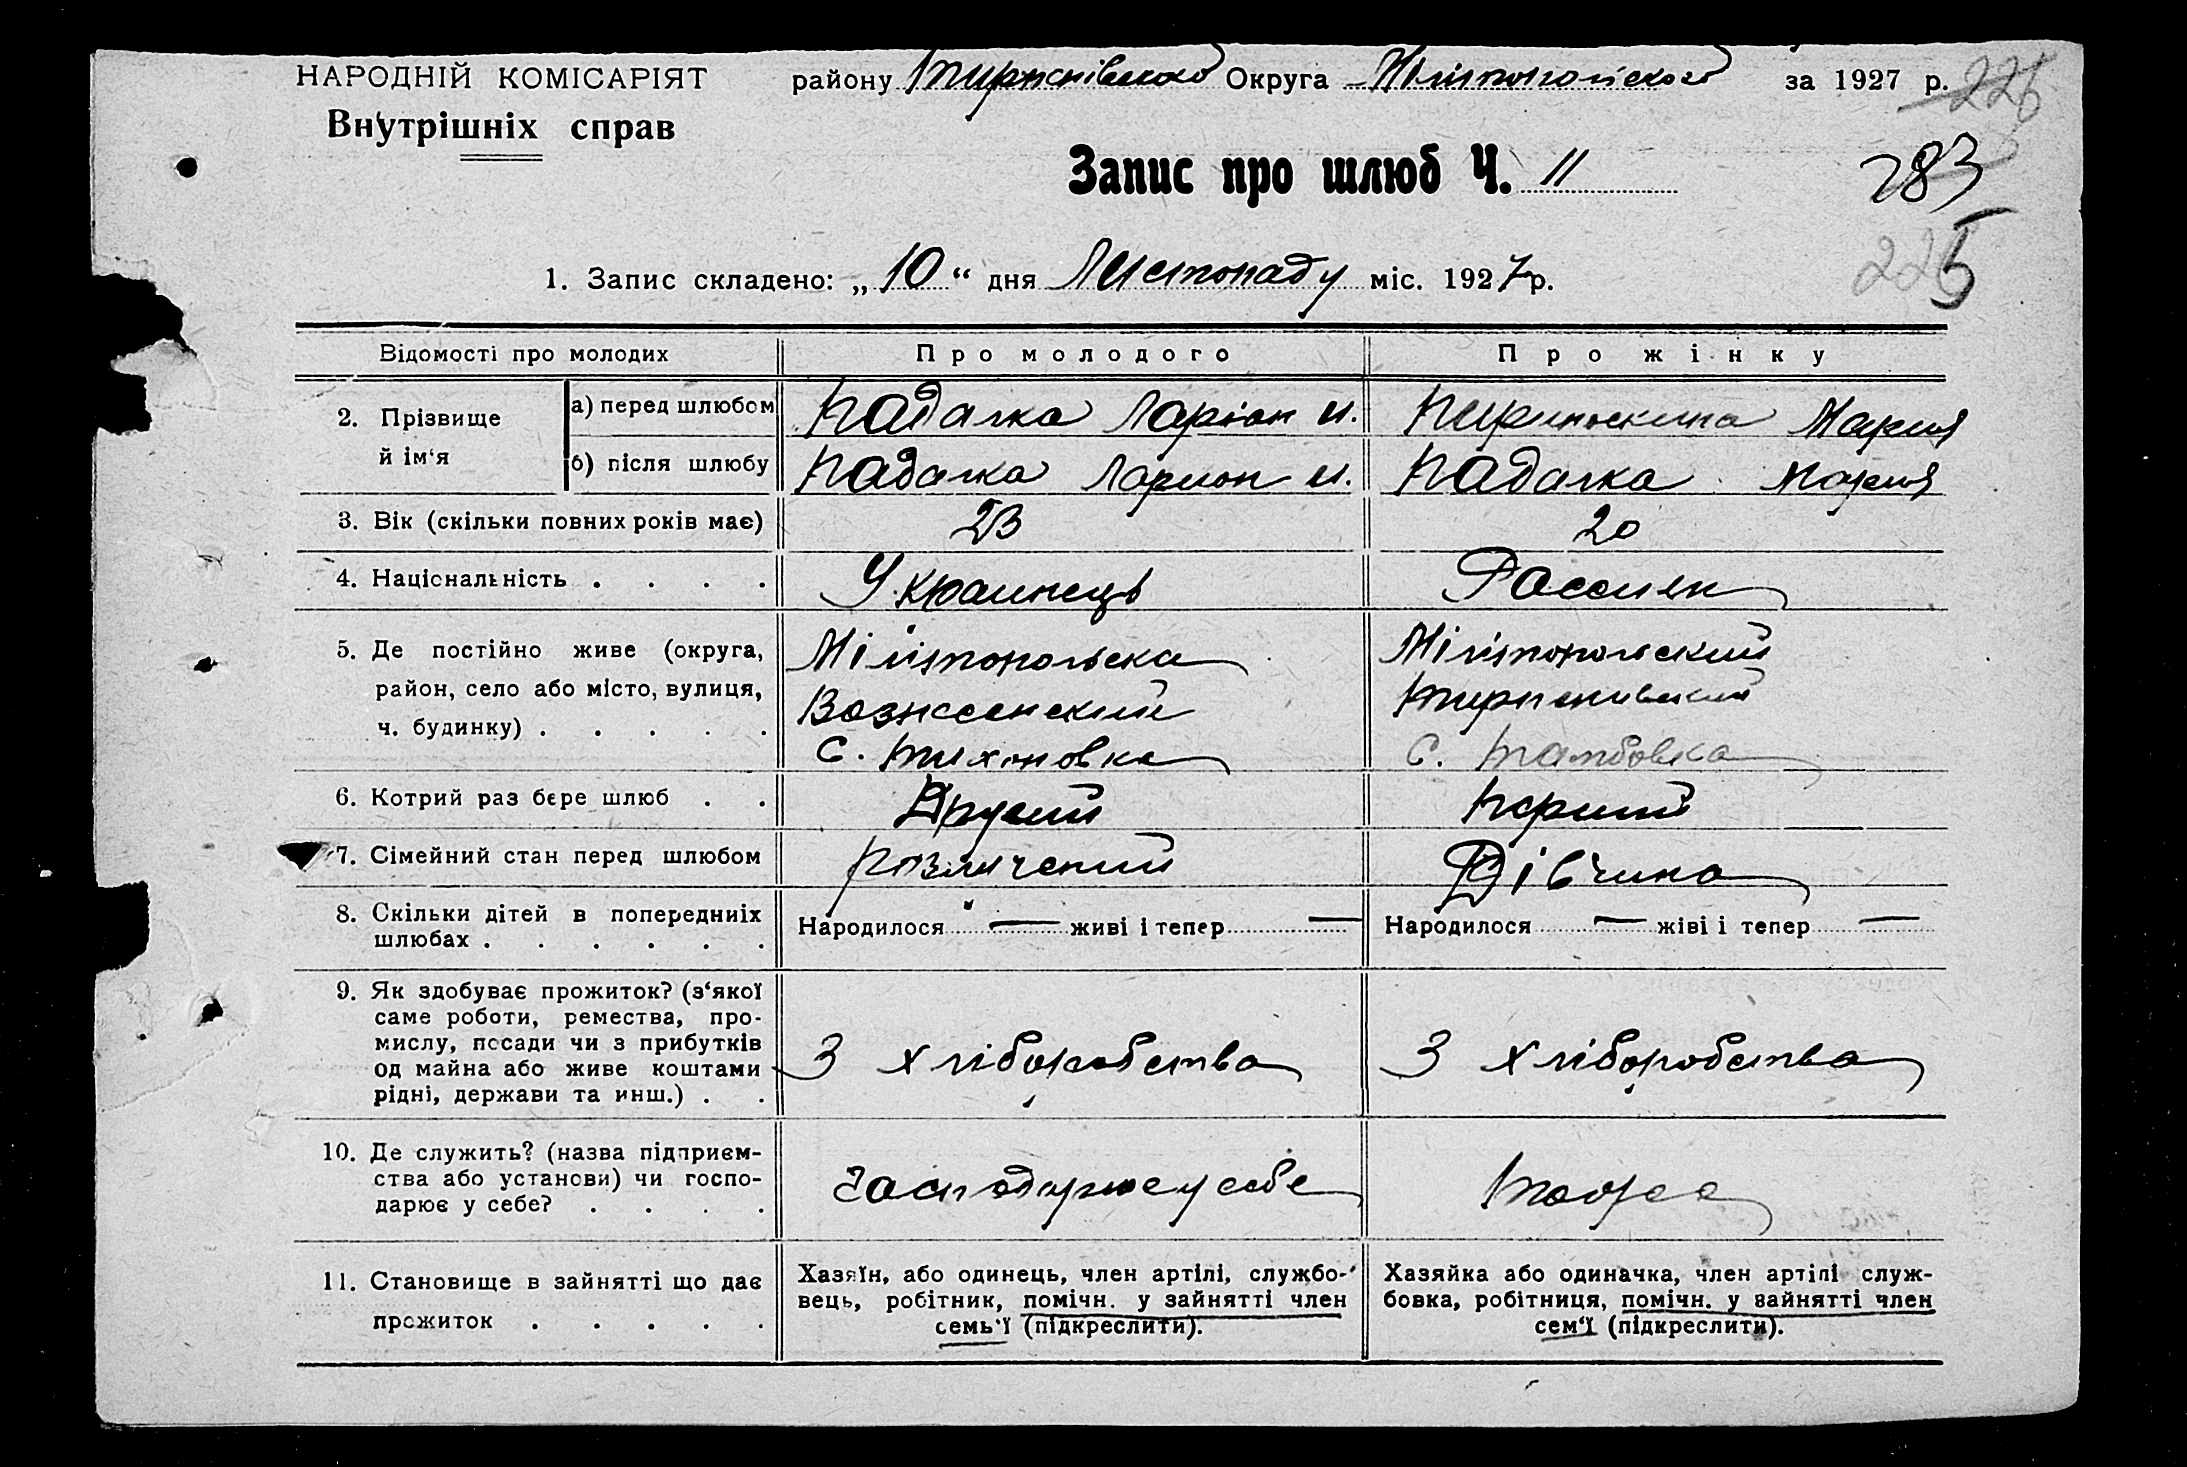 НАРОДНІЙ КОМІСАРІЯТ
Внутрішніх справ
району Тирпенівского Округа Мілітопольского за 1927 р.
226
Запис про шлюб Ч. 11
283
225
1. Запис складено: „10“ дня Листопаду міс. 1927 р.
Відомості про молодих Про молодого Про жінку
2. Прізвище й ім‘я
а) перед шлюбом Падалка Ларіон И. Мария
б) після шлюбу Падалка Ларион И. Падалка Мария
3. Вік (скільки повних років має) 23 20
4. Національність . . . . Украинець Россиян
5. Де постійно живе (округа,
район, село або місто, вулиця,
ч. будинку) . . . . .
Мілітопольска
Вознесенский
с. Тихоновка
Мілітопольский
Тирпенивский
с. Тамбовка
6. Котрий раз бере шлюб . . Другий Перший
7. Сімейний стан перед шлюбом Розличений Дівчина
8. Скільки дітей в попередниіх
шлюбах . . . . . .
Народилося — живі і тепер —
Народилося — жіві і тепер —
9. Як здобуває прожиток? (з‘якої
саме роботи, ремества, про-
мислу, посади чи з прибутків
од майна або живе коштами
рідні, держави та инш.) . .
З хліборобства З хліборобства
10. Де служить? (назва підприєм-
ства або установи) чи госпо-
дарює у себе? . . . .
Господарює у себе
11. Становище в зайнятті що дає
прожиток . . . . .
Хазяїн, або одинець, член артілі, службо-
вець, робітник, помічн. у зайнятті член
семь‘ї (підкреслити).
Хазяйка або одиначка, член артілі служ-
бовка, робітниця, помічн. у зайнятті член
сем‘ї (підкреслити).